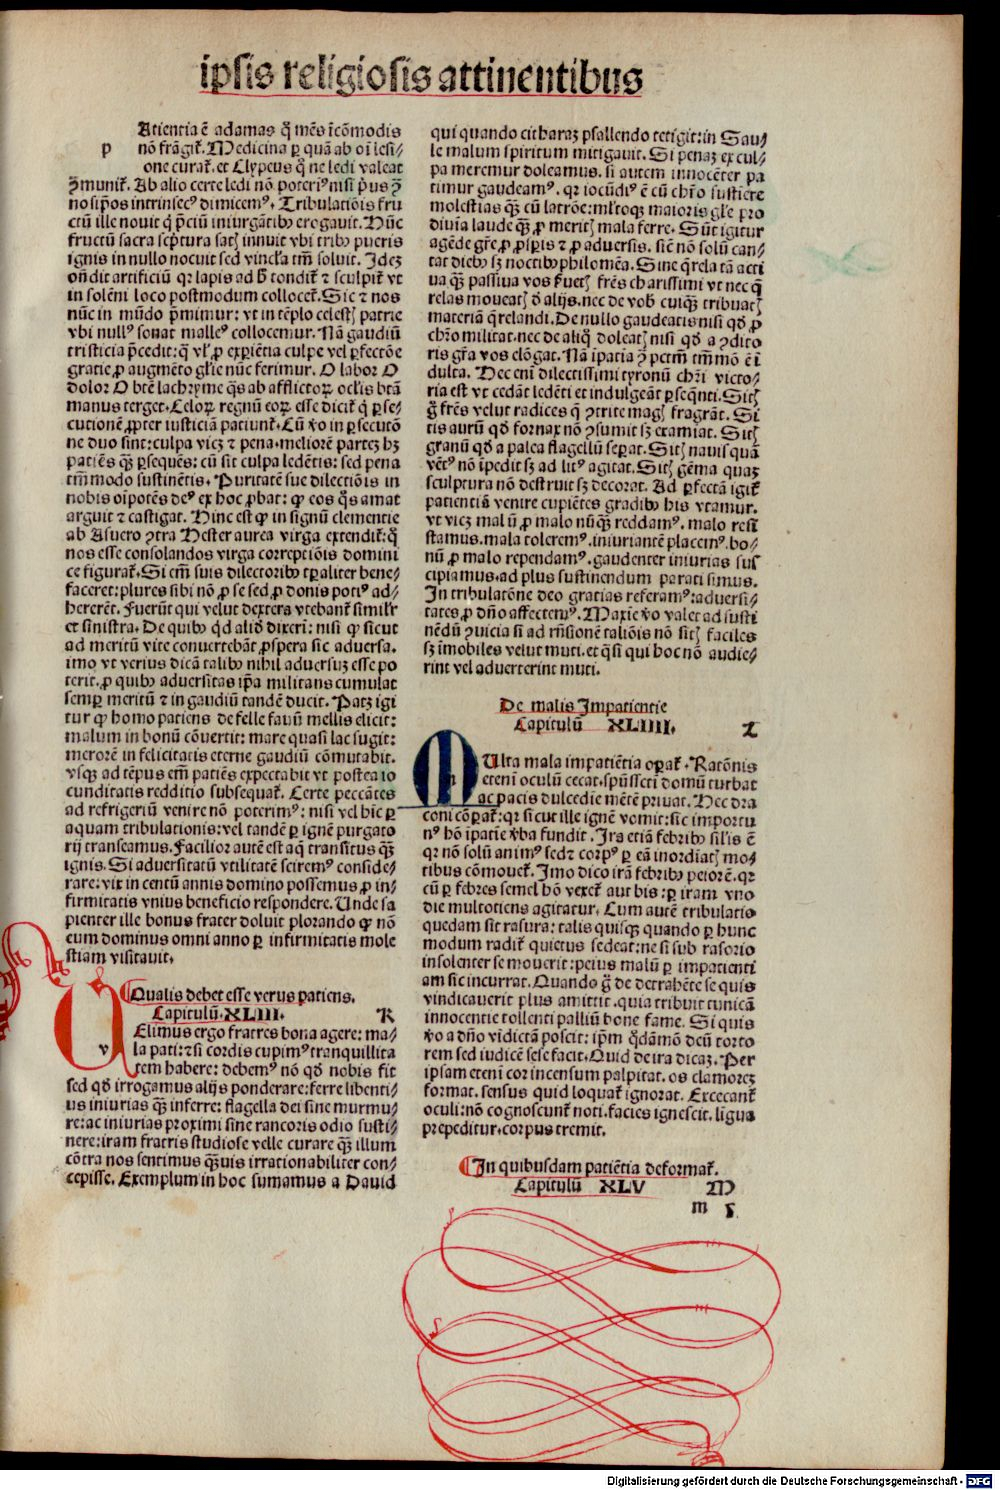 ipsis religiosis attinentibus
Atientia ē adamas q̄ mēs īcōmodis
p nō frāgit̄. Medicina ꝑ quā ab oī lesi⸗
one curat̄. et Clypeus q̄ ne ledi valeat
p̄munit̄. Ab alio certe ledi nō poterim⁹ nisi
no sip̄os intrinsec⁹ dimicem⁹. Tribulatiōis fru
ctū ille nouit q̄ p̄ciū iniurgātibꝫ erogauit. Hūc
fructū sacra sc̄ptura satꝭ innuit vbi tribꝫ pueris
ignis in nullo nocuit sed vincl'a tm̄ soluit. Idez
on̄dit artificiū qr̄ lapis ad tondit̄ ⁊ sculpit̄ vt
in solēni loco postmodum collocet̄. Sic ⁊ nos
nūc in mūdo p̄mimur: vt in tēplo celestꝭ patrie
vbi null⁹ sonat malle⁹ collocemur. Nā gaudiū
tristicia p̄cedit: q̄ vl' ꝓ exꝑiētia culpe vel ꝑfectōe
gratie ꝓ augmēto gl'ie nūc ferimur. O labor O
dolor O btē lachryme q̄s ab afflictoꝝ ocl'is btā
manus terget. Celoꝝ regnū eoꝝ esse dicit̄ q̄ ꝑse⸗
cutionē ꝓpter iusticiā patiunt̄. Cū v̄o in ꝑsecutō
ne duo sint: culpa vicꝫ ⁊ pena. meliorē partez hꝫ
patiēs qꝫ̄ ꝑsequēs: cū sit culpa ledētis: sed pena
tm̄modo sustinētis. Puritatē sue dilectiōis in
nobis oīpotēs de⁹ ex hoc ꝓbat: ꝙ eos q̄s amat
arguit ⁊ castigat. Hinc est ꝙ in signū clementie
ab Asuero ꝯtra Hester aurea virga extendit̄: q̄
nos esse consolandos virga correptiōis domini
ce figurat̄. Si em̄ suis dilectoribꝫ tꝑaliter bene⸗
faceret: plures sibi nō ꝓ se sed ꝓ donis poti⁹ ad⸗
hererēt. Fuerūt qui velut dextera vtebant̄ simil'r
et sinistra. De quibꝫ qd aliđ dixeri: nisi ꝙ sicut
ad meritū vite conuertebāt ꝓspera sic aduersa.
imo vt verius dicā talibꝫ nihil aduersuꝫ esse po
terit. ꝓ quibꝫ aduersitas ip̄a militans cumulat
semꝑ meritū ⁊ in gaudiū tandē ducit. Patꝫ igi
tur ꝙ homo patiens de felle fauū mellis elicit:
malum in bonū cōuertit: mare quasi lac sugit:
merorē in felicitatis eterne gaudiū cōmutabit.
vsqꝫ ad tēpus em̄ patiēs expectabit vt postea io
cunditatis redditio subsequat̄. Certe peccātes
ad refrigeriū venire nō poterim⁹: nisi vel hīc ꝑ
aquam tribulationis: vel tandē ꝑ ignē purgato
rij transeamus. Facilior autē est aq̄ transitus qꝫ̄
ignis. Si aduersitatū vtilitatē scirem⁹ conside⸗
rare: vix in centū annis domino possemus ꝓ in⸗
firmitatis vnius beneficio respondere. Unde sa
pienter ille bonus frater doluit plorando ꝙ nō
eum dominus omni anno ꝑ infirmitatis mole
stiam visitauit.
Qualis debet esse verus patiens.
Capitulū. XLIII. R
v Elimus ergo fratres bona agere: ma⸗
la pati: ⁊ si cordis cupim⁹ tranquillita
tem habere: debem⁹ nō qd nobis fit
sed qd irrogamus alijs ponderare: ferre libenti⸗
us iniurias qꝫ̄ inferre: flagella dei sine murmu⸗
re: ac iniurias proximi sine rancoris odio susti⸗
nere: iram fratris studiose velle curare qꝫ̄ illum
cōtra nos sentimus qꝫ̄uis irrationabiliter con⸗
cepisse. Exemplum in hoc sumamus a Dauid
qui quando citharaꝫ psallendo tetigit: in Sau⸗
le malum spiritum mitigauit. Si penaꝫ ex cul⸗
pa meremur doleamus. si autem innocēter pa
timur gaudeam⁹. qr̄ iocūdi⁹ ē cū chr̄o sustiere
molestias qꝫ̄ cū latrōe: ml'toqꝫ maioris gl'ie pro
diuīa laude qꝫ̄ ꝓ meritꝭ mala ferre. Sūt igitur
agēde gr̄e ꝓ ꝓsꝑis ⁊ ꝓ aduersis. sic̄ nō solū can⸗
tat diebꝫ sꝫ noctibꝫ philomēa. Sine q̄rela tā acti
ua qꝫ̄ passiua vos fr̄es charissimi vt nec q̄
relas moueatꝭ đ alijs. nec de vob̄ cuiqꝫ̄ tribuatꝭ
materiā q̄relandi. De nullo gaudeatis nisi qđ ꝓ
chr̄o militat. nec de aliq̄ doleatꝭ nisi qđ a ꝯdito
ris gr̄a vos elōgat. Nā īpatia ꝯ pctm̄ tm̄mō ē ī
dulta. Hec eni dilectissimi tyronū chr̄i victo⸗
ria est vt cedāt ledēti et indulgeāt ꝑseq̄nti. Sitꝭ
g̊ fr̄es velut radices q̄ ꝯtrite magꝭ fragrāt. Si
tis aurū qđ fornax nō ꝯsumit sꝫ examīat. Sitꝭ
granū qđ a palea flagellū seꝑat. Sitꝭ nauis quā
vēt⁹ nō īpedit sꝫ ad lit⁹ agitat. Sitꝭ gēma quaꝫ
sculptura nō destruit sꝫ decorat. Ad ꝑfectā igit̄
patientiā venire cupiētes gradibꝫ his vtamur.
vt vicꝫ malū ꝓ malo nūqꝫ̄ reddam⁹. malo resi
stamus. mala tolerem⁹. iniuriantē placem⁹. bo⸗
nū ꝓ malo rependam⁹. gaudenter iniurias sus
cipiamus. ad plus sustinendum parati simus.
In tribulatōne deo gratias referam⁹: aduersi⸗
tates ꝓ dn̄o affectem⁹. Maxīe v̄o valet ad susti
nēdū ꝯuicia si ad rn̄sionē taliōis nō sitꝭ faciles
sꝫ īmobiles velut muti. et q̄si qui hoc nō audie⸗
rint vel aduerterint muti.
De malis Impatientie
Capitulū XLIIII. Z
m Ulta mala impatiētia oꝑat̄. Ratōnis
eteni oculū cecat. spūssct̄i domū turbat
ac pacis dulcedīe mētē priuat. Hec dra
coni cōꝑat̄: qr̄ sicut ille ignē vomit: sic importu
n⁹ hō īpatiē v̄ba fundit. Ira etiā febribꝫ silīs ē
qr̄ nō solū anim⁹ sed ⁊ corp⁹ ꝑ eā inordiatꝭ mo⸗
tibus cōmouet̄. Imo dico irā febribꝫ peiorē. qr̄
cū ꝑ febres semel hō vexet̄ aut bis: ꝑ iram vno
die multotiens agitatur. Cum autē tribulatio
quedam sit rasura: talis quisqꝫ quando ꝑ hunc
modum radit̄ quietus sedeat: ne si sub rasorio
insolenter se mouerit: peius malū ꝑ impatienti
am sic incurrat. Quando g̊ de detrahēte se quis
vindicauerit plus amittit. quia tribuit tunicā
innocentie tollenti palliū bone fame. Si quis
v̄o a dn̄o vīdictā poscit: ip̄m q̄dāmō deū torto
rem sed iudicē sese facit. Quid de ira dicaꝫ. Per
ipsam etenī cor incensum palpitat. os clamoreꝫ
format. sensus quid loquat̄ ignorat. Excecant̄
oculi: nō cognoscunt̄ noti. facies ignescit. ligua
prepeditur. corpus tremit.
In quibusdam patiētia deformat̄.
Capitulū XLV M
m s
Digitalisierung gefördert durch die Deutsche Forschungsgemeinschaft - DFG